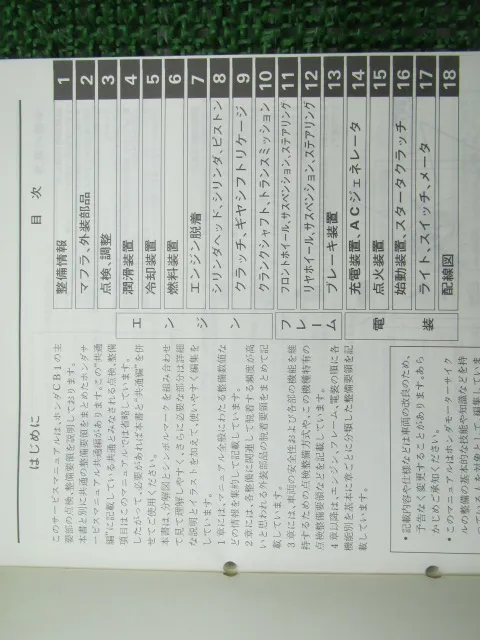 はじめに
このサービスマニュアルは、ホンダCB1の主
要部の点検、整備要領を説明しております。
本書と別に共通の整備要領をまとめたホンダサ
ービスマニュアル共通編があります。この“共通
編”に記載している共通とみなされる点検、整備
項目はこのマニュアルでは省略しています。
したがって、必要があれば本書と“共通編”を併
せてご使用ください。
本書は、分解図とシンボルマークを組み合わせ
て見て理解しやすく、さらに必要な部分は詳細
な説明とイラストを加えて、使いやすく編集を
しています。
1章には、マニュアル全般にわたる整備数値な
どの情報を集約して記載しています。
2章には、各整備に関連して脱着する頻度が高
いと思われる外装部品の脱着要領をまとめて記
載しています。
3章には、車両の安全性および各部の機能を維
持するための点検整備方式や、この機種特有の
点検整備要領などを記載しています。
4章以降は、エンジン、フレーム、電装の順に各
機能別を基本に章ごとに分類した整備要領を記
載しています。
•記載内容や仕様などは車両の改良のため、
予告なく変更することがあります。あら
かじめご承知ください。
•このマニュアルはホンダモーターサイク
ルの整備の基本的な技能や知識などを持
っている方を対象として、編集していま
目 次
整備情報 1
マフラ、外装部品 2
点検、調整 3
エンジン
潤滑装置 4
冷却装置 5
燃料装置 6
エンジン脱着 7
シリンダヘッド、シリンダ、ピストン 8
クラッチ、ギヤシフトリケージ 9
クランクシャフト、トランスミッション 10
フレーム
フロントホイール、サスペンション、ステアリング 11
リヤホイール、サスペンション、ステアリング 12
ブレーキ装置 13
電装
充電装置、ACジェネレータ 14
点火装置 15
始動装置、スタータクラッチ 16
ライト、スイッチ、メータ 17
配線図 18